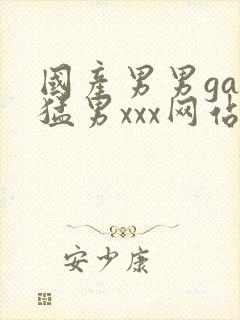 國産男男ga
猛男xxx网佔
安少康